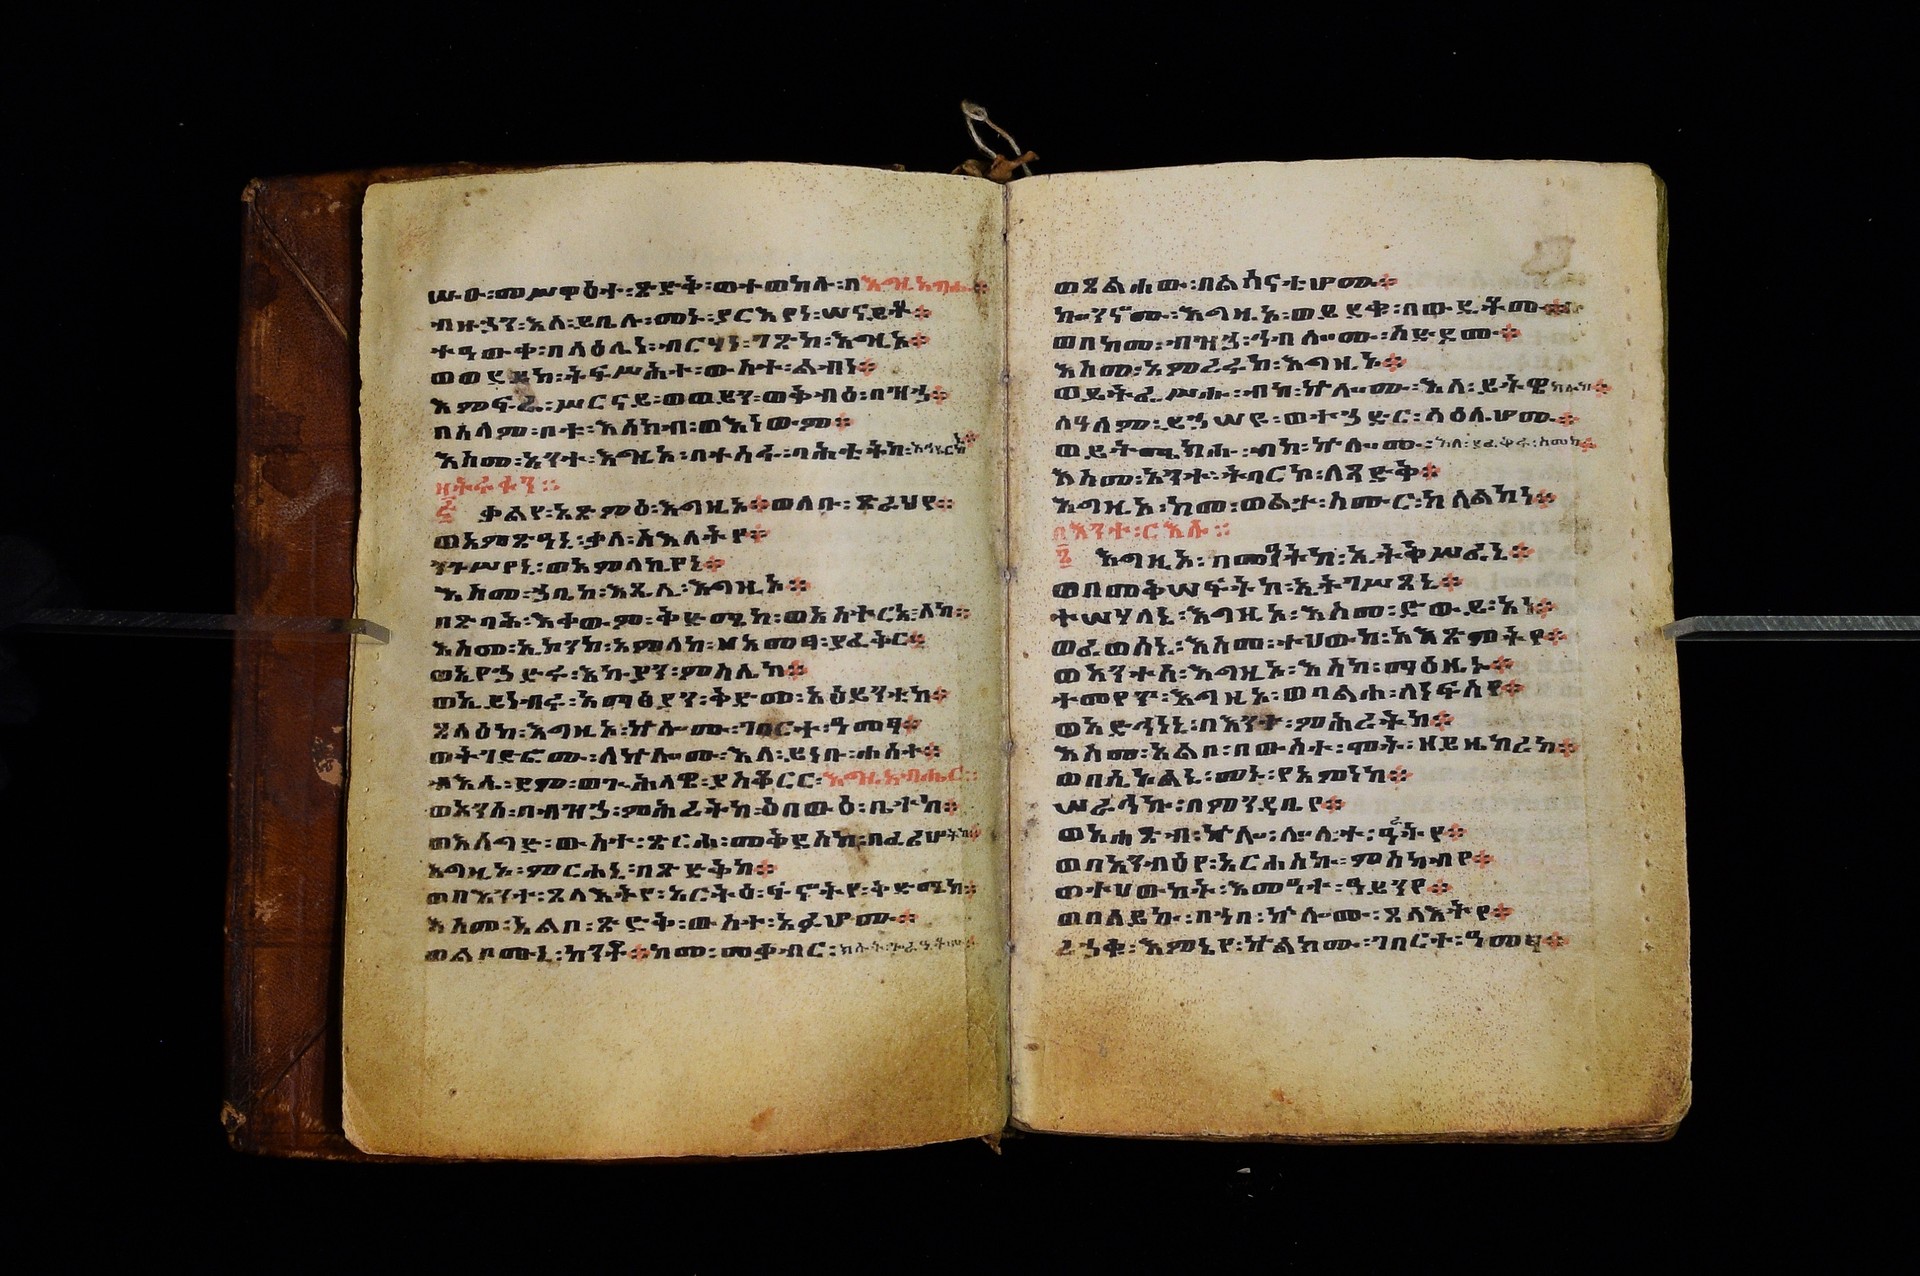 ሡዑ፡መሥዋዕተ፡ጽድቅ፡ወተወከሉ፡በእግዚአብሔር፨
ብዙኃን፡እለ፡ይቤሉ፡መኑ፡ያርእየነ፡ሠናይቶ፨
ተዓውቀ፡በላዕሌነ፡ብርሃነ፡ገጽከ፡እግዚኦ፨
ወወደይከ፡ትፍሥሕተ፡ውስተ፡ልብነ፨
እምፍሬ፡ሥርናይ፡ወወይን፡ወቅብዕ፡በዝኃ፨
በሰላም፡ቦቱ፡እሰክብ፡ወእነውም፨
እስመ፡አንተ፡እግዚኦ፡በተስፋ፡ባሕቲትከ፡
፭ ቃልየ፡አጽምዕ፡እግዚኦ፨ወለቡ፡ጽራህየ፨
ወአምጽዓኒ፡ቃለ፡ስእለትየ፨
ንጉሥየኒ፡ወአምላኪየኒ፨
እስመ፡ኃቤከ፡እጼሊ፡እግዚኦ፨
በጽባሕ፡እቀውም፡ቅድሜከ፡ወእአስተርኢ፡ለከ፨
እስመ፡ኢኮንከ፡አምላከ፡ዘአመፃ፡ያፈቅር፨
ወኢየኃድሩ፡እኩያን፡ምስሌከ፨
ወኢይነብሩ፡አማፅያን፡ቅድመ፡አዕይንቲከ፨
ጸላዕከ፡እግዚኦ፡ኵሎሙ፡ገበርተ፡ዓመፃ፨
ወትገድፎሙ፡ለኵሎሙ፡እለ፡ይነቡ፡ሐሰተ፨
ብእሴ፡ደም፡ወጕሕላዌ፡ያስቆርር፡እግዚአብሔር፨
ወአንሰ፡በብዝኃ፡ምሕረትከ፡ዕበውዕ፡ቤተከ፨
ወእሰግድ፡ውስተ፡ጽርሐ፡መቅደስከ፡በፈሪሆትከ፨
እግዚኦ፡ምርሐኒ፡በጽድቅከ፨
ወበእንተ፡ጸላእትየ፡አርትዕ፡ፍኖትየ፡ቅድሜከ፨
እስመ፡አልቦ፡ጽድቅ፡ውስተ፡አፉሆሙ፨
ወልቦሙኒ፡ከንቶ፨ከመ፡መቃብር፡ክሱት፡ጕራዒቶሙ፨
ወጼልሐው፡በልሳናቲሆሙ፨
ኰንኖሙ፡እግዚኦ፡ወይደቁ፡በውዴቶሙ፨
ወበከመ፡ብዝኃ፡ኅብሎሙ፡ስድዶሙ፨
እስመ፡አምረሩከ፡እግዚኦ፨
ወይትፌሥሑ፡ብከ፡ኵሎሙ፡እለ፡ይትዌከሉከ፨
ለዓለም፡ይኃሥዩ፡ወተኃድር፡ላዕሌሆሙ፨
ወይትሜክሑ፡ብከ፡ኵሎሙ፡እለ፡ያፈቅሩ፡ስመከ፨
እስመ፡አንተ፡ትባርኮ፡ለጻድቅ፨
እግዚኦ፡ከመ፡ወልታ፡ስሙር፡ከለልከነ፨
፮ እግዚኦ፡በመዓትከ፡ኢትቅሥፈኒ፨
ወበመቅሠፍትከ፡ኢትገሥጸኒ፨
ተሠሃለኒ፡እግዚኦ፡እስመ፡ድውይ፡አነ፨
ወፈወሰኒ፡እስመ፡ተሀውከ፡አእጽምትየ፨
ወአንተሰ፡እግዚኦ፡እስከ፡ማዕዜኑ፨
ተመየጥ፡እግዚኦ፡ወባልሐ፡ለነፍስየ፨
ወአድኅነኒ፡በእንተ፡ምሕረትከ፨
እስመ፡አልቦ፡በውስተ፡ሞት፡ዘይዜከረከ፨
ወበሲኦልኒ፡መኑ፡የአምነከ፨
ሠራኅኩ፡በምንዳቤየ፨
ወአሐጽብ፡ኵሎ፡ሌሊተ፡ዓራትየ፨
ወበአንብዕየ፡አርሐስኩ፡ምስካብየ፨
ወተሀውከት፡እመዓት፡ዓይንየ፨
ወበለይኩ፡በኀበ፡ኵሎሙ፡ጸላእትየ፨
ረኃቁ፡እምኔየ፡ኵልክሙ፡ገበርተ፡ዓመፃ፨